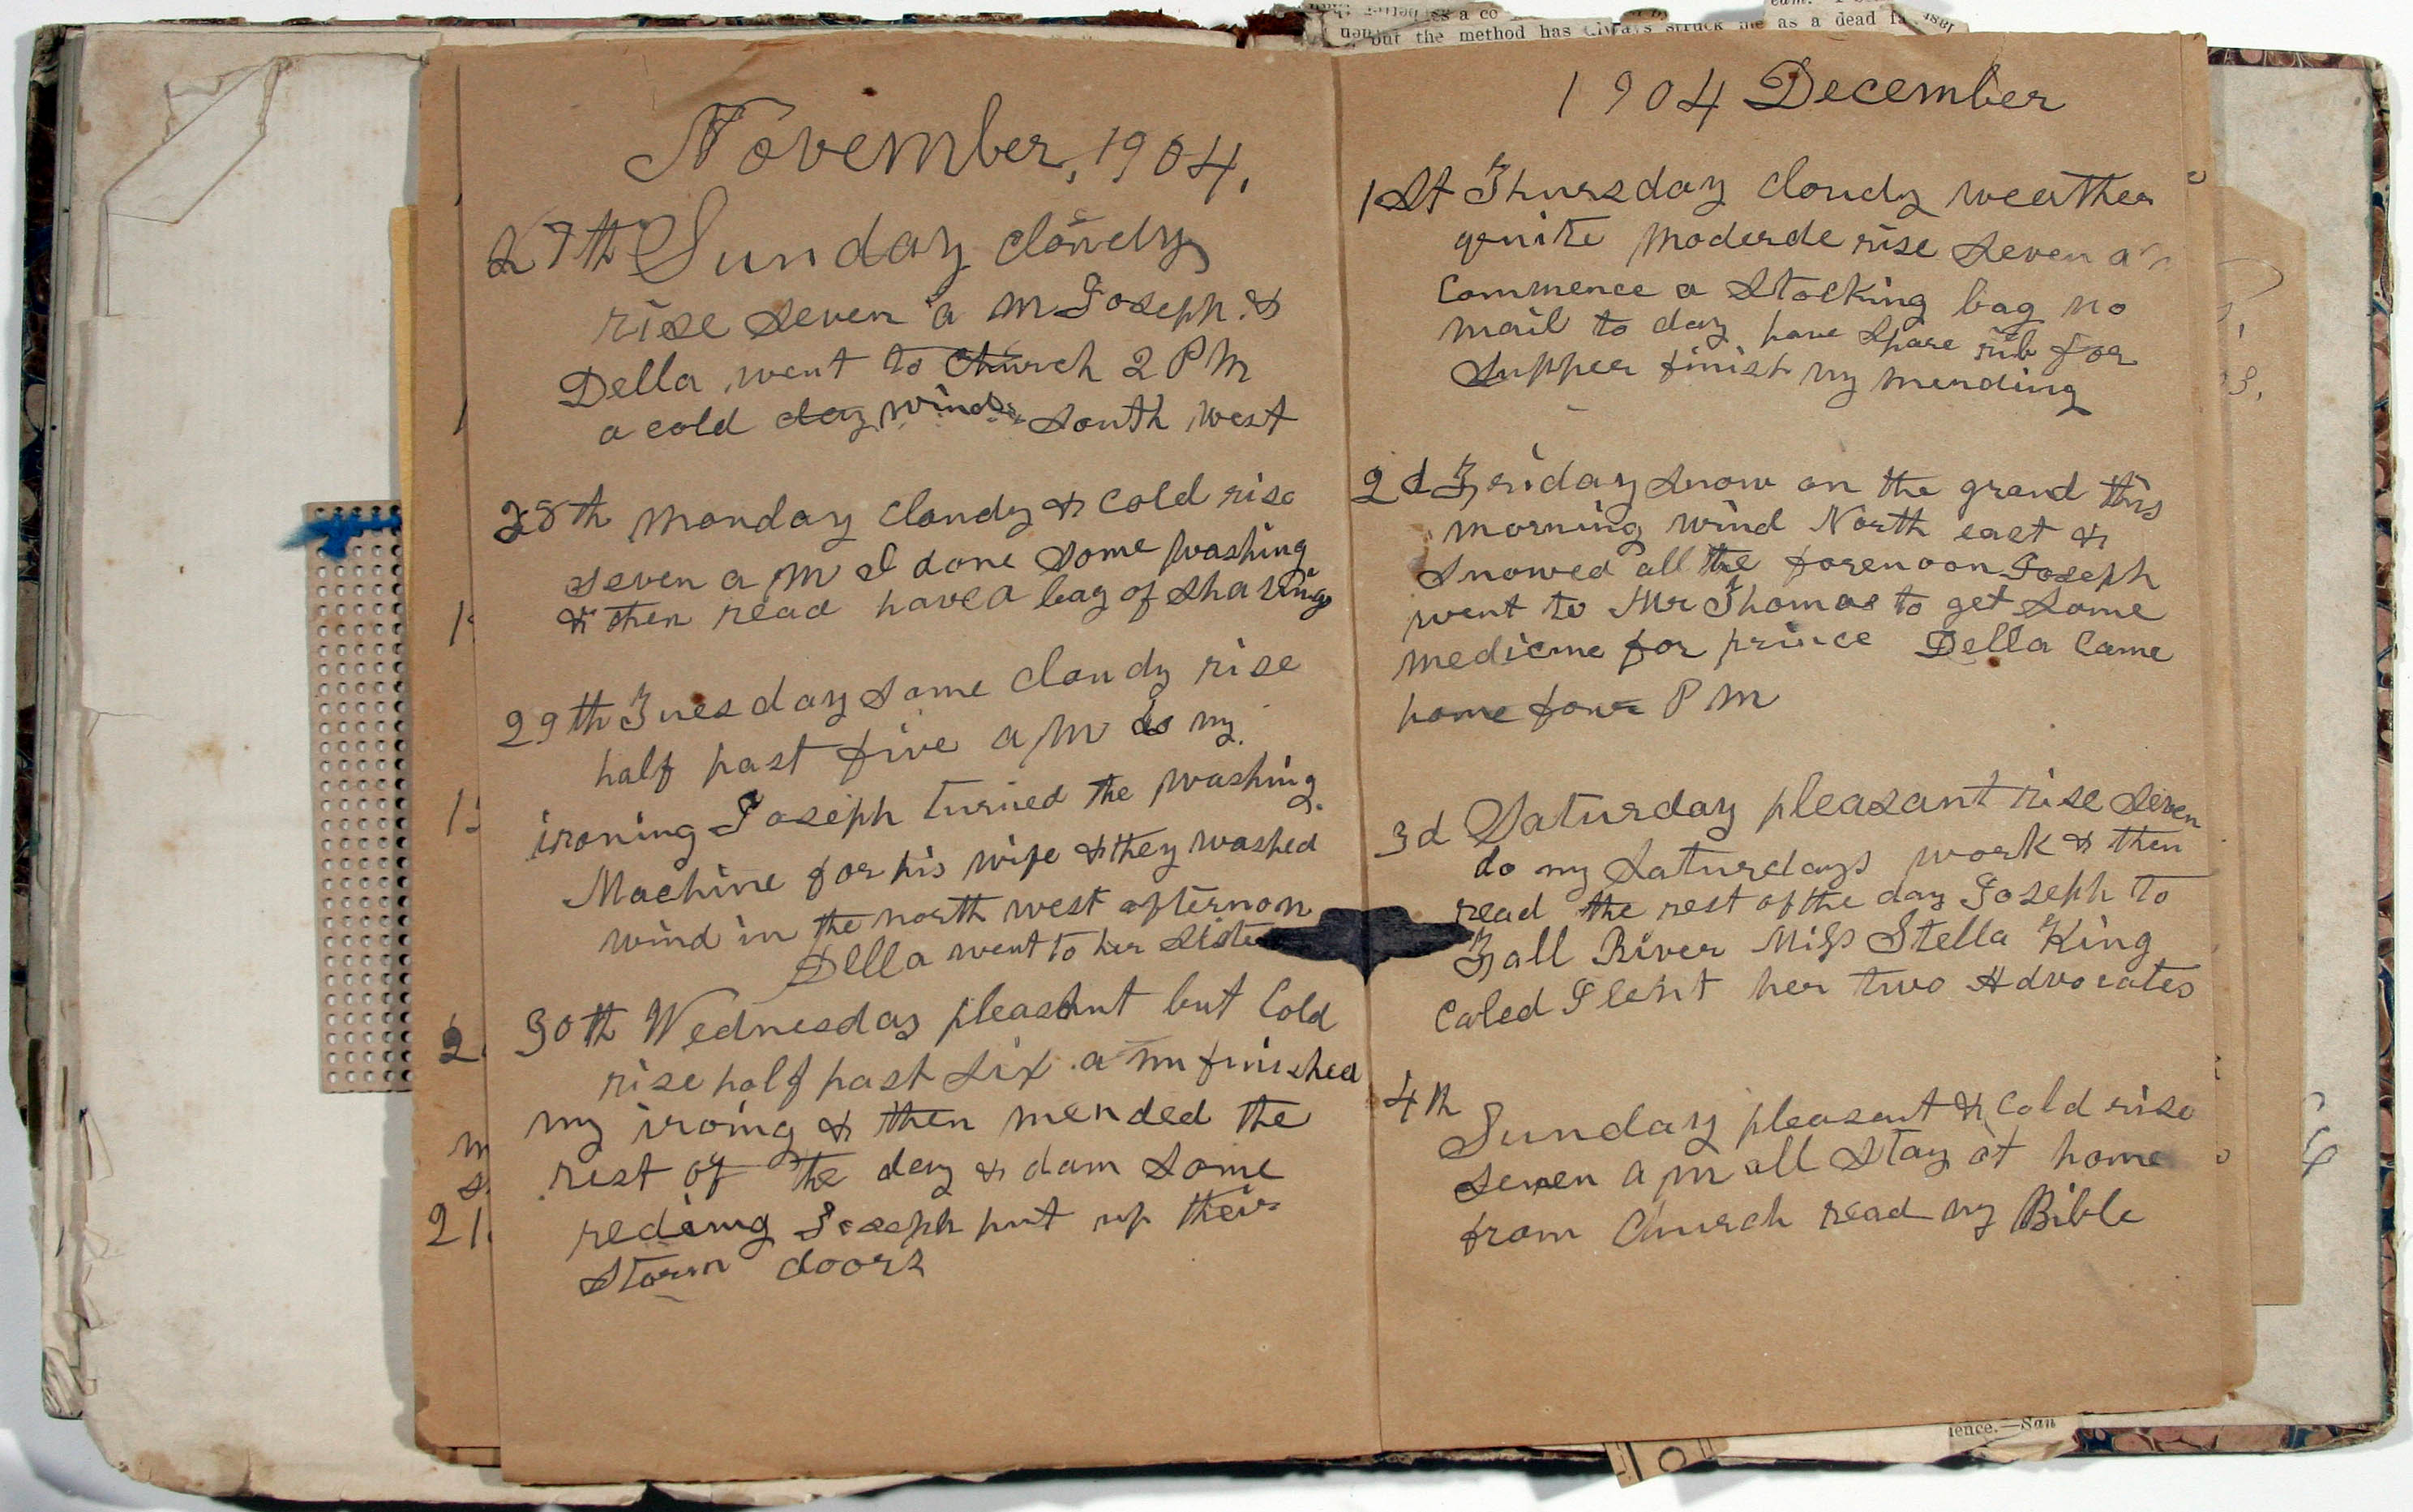 but the method has always struck me as a dead
November, 1904.
27th Sunday cloudy
rise seven a m Joseph &
Della went to Church 2 P M
a cold day wind south west
28th monday cloudy & cold rise
seven a m I done some washing
& then read have a bag of shavings
29th Tuesday some cloudy rise
half past five a m do my
ironing Joseph turned the washing
Machine for his wife & they washed
wind in the north west afternon
Della went to her sister
30th Wednesday pleasant but Cold
rise half past six a m finished
my iroing & then mended the
rest of the day & dam some
redeing Joseph put up their
storm doors
1904 December
1st Thursday cloudy weather
quite moderde rise seven a
Commence a stocking bag no
mail to day have spare rib for
supper finish my mending
2d Friday snow on the grand this
morning wind North east &
snowed all the forenoon Joseph
went to Mr Thomas to get some
medicine for prince Della Came
home four P M
3d Saturday pleasant rise seven
do my saturdays work & then
read the rest of the day Joseph to
Fall River Miss Stella King
Caled I lent her two Advocates
4th
Sunday pleasant & Cold rise
seven a m all stay at home
from Church read my Bible
ience.—San